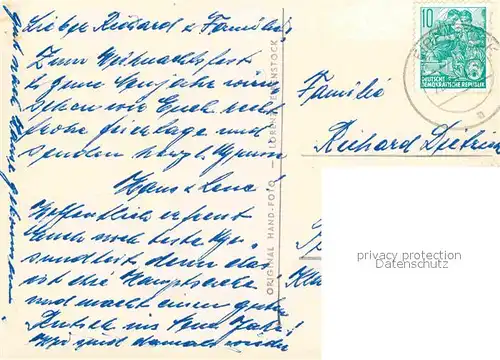 Liebe Richard u. Familie!
Zum Weihnachtsfest
u. zum Neujahr wün
schen wir Euch recht
frohe Feiertage und
senden herzl. Grüsse
Hans u. Lena!
Hoffentlich erfreut
Euch noch beste Ge-
sundheit denn das
ist die Hauptsache
und macht einen guten
Rutsch ins Neue Jahr!
Wir sind damals wieder
ORIGINAL HAND-FOTO — LORENZ, EIBENSTOCK
10
DEUTSCHE
DEMOKRATISCHE REPUBLIK
Familie
Richard
privacy protection
Datenschutz